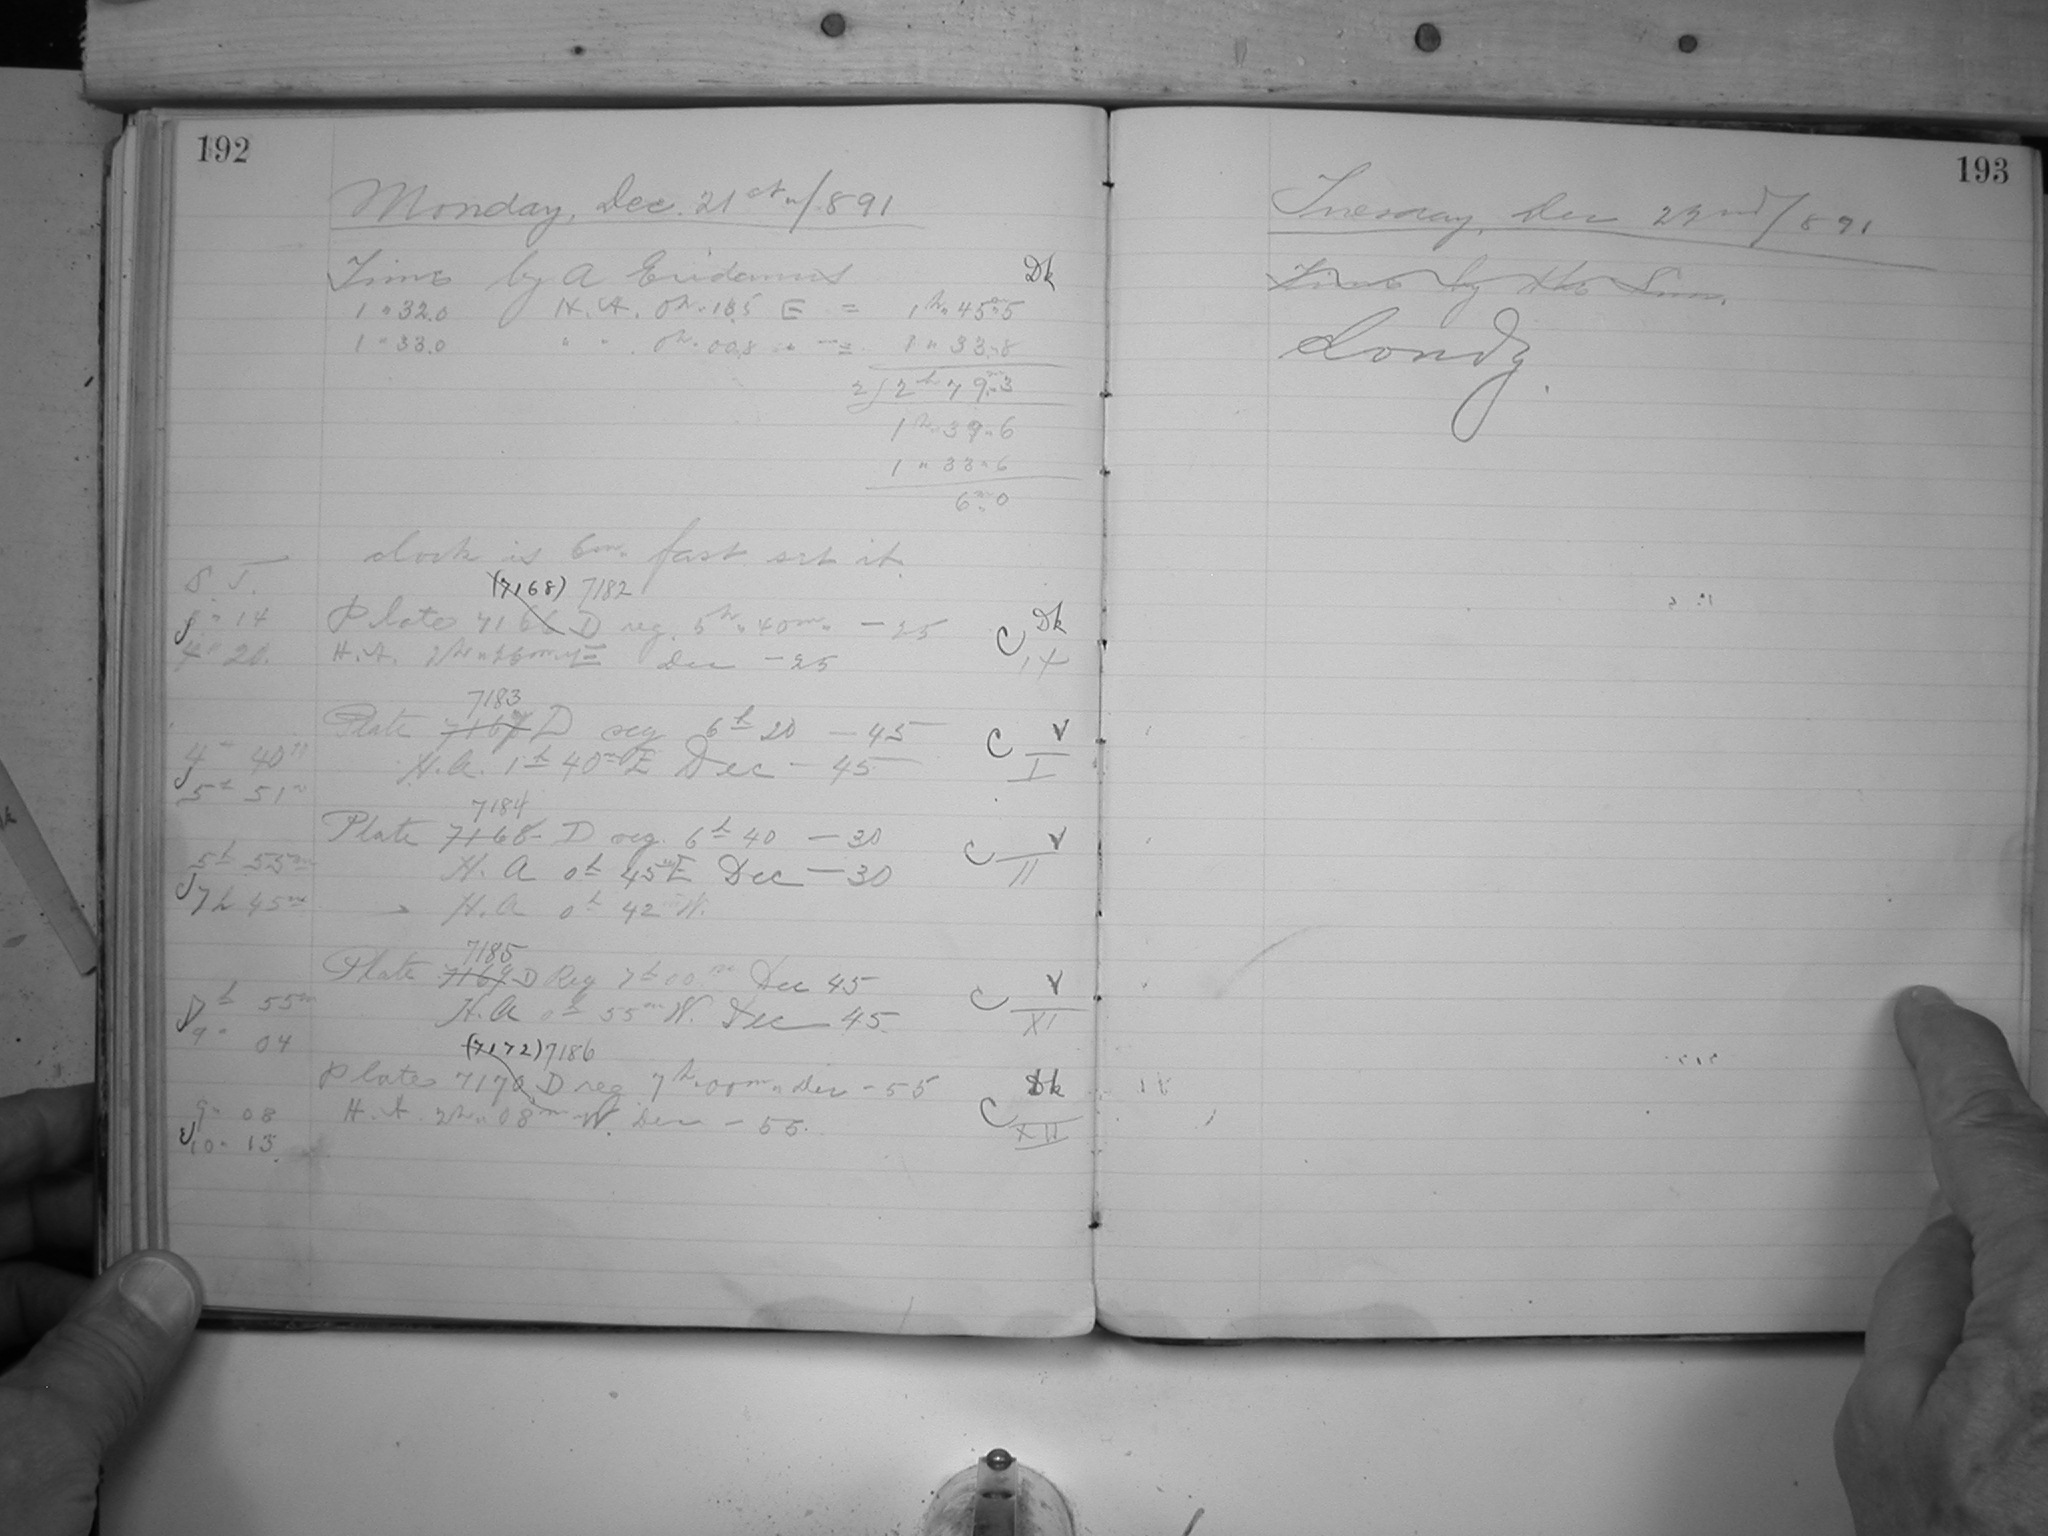 192
Monday, Dec. 21st 1891
Time by A Eridanus Dk
1 " 32.0 H.A. 0h. 13.5 E = 1h. 45m.5
1 " 33.0 " " . 0h. 00.8 " = 1 " 33.8
2) 2h 79m.3
1h. 39.6
1 " 33.6
6m.0
clock is 6m. fast set it.
S.T.
(7168) 7182
Plate 7166 D reg. 5h. 40m. -25 C Dk
4 " 20. H.A. Dec -25 IX
7183
Plate 7167 D reg 6h 20 -45 C V
4h 40m H.A. 1h 40m E Dec -45 I
5h 51m
7184
Plate 7168 D reg. 6h 40 -30 C V
5h 55m H.A 0h 45m E Dec -30 II
7h 45m H.A 0h 42 W.
7185
Plate 7169 D Reg 7h 00m Dec 45 C V
55m H.A 0h 55m W. Dec 45 XI
9 " 04
(7172) 7186
Plate 7170 D reg 7h. 00m. Dec -55 C Dk
9 " 08 H.A. 2h. 08m W. Dec -55. XII
10 " 13
193
Tuesday, Dec 22nd 1891
Time by the Sun.
Cloudy.